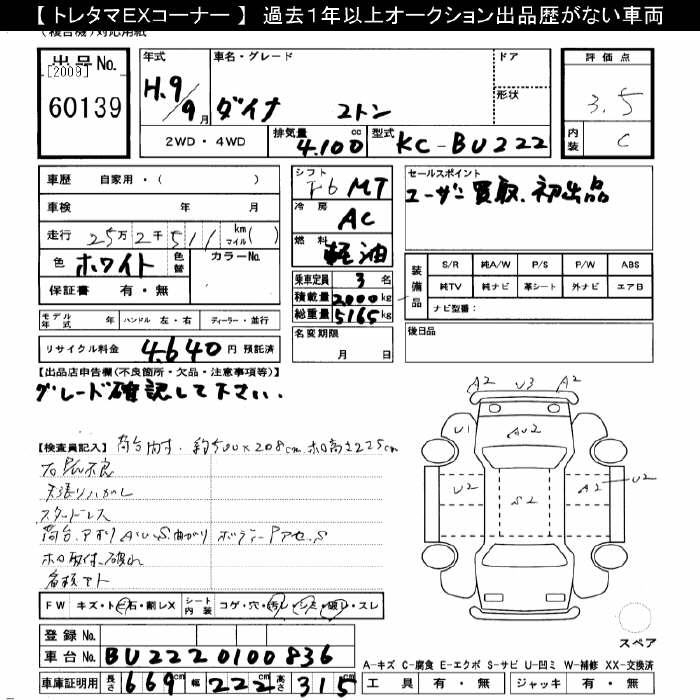 【 トレタマEXコーナー 】 過去1年以上オークション出品歴がない車両
(複合機)対応用紙
出品No. [2009] 60139
年式 H.9 9月
車名・グレード ダイナ 2トン
ドア
形状
評価点 3.5
内装 C
2WD・4WD
排気量 4.100 cc
型式 KC-BU222
車歴 自家用・( )
車検 年 月
走行 25万2千511 km マイル( )
色 ホワイト 色替 カラーNo.
保証書 有・無
シフト F6 MT
冷房 AC
燃料 軽油
乗車定員 3名
積載量 2000kg
総重量 5165kg
名変期限 月 日
セールスポイント
ユーザー買取、初出品
装備品 S/R 純A/W P/S P/W ABS
純TV 純ナビ 革シート 外ナビ エアB
ナビ型番:
後日品
モデル年式 年 ハンドル 左・右 ディーラー・並行
リサイクル料金 4,640円 預託済
【出品店申告欄(不良箇所・欠品・注意事項等)】
グレード確認して下さい.
【検査員記入】 荷台内寸. 約500×208cm ホロ高さ225cm
天張りハガレ
スタッドレス
荷台.アオリ AUS曲がり ボディーPアセ.S
ホロ取付.破れ
A2 U3 A2
U1 AU2
U2 S2 A2 U2
FW キズ・トビ石・割レX シート内装 コゲ・穴・汚レ・シミ・破レ・スレ
スペア
登録No.
車台No. BU222 0100836
車庫証明用 長さ 669cm 幅 222cm 高さ 315cm
A-キズ C-腐食 E-エクボ S-サビ U-凹ミ W-補修 XX-交換済
工具 有・無 ジャッキ 有・無